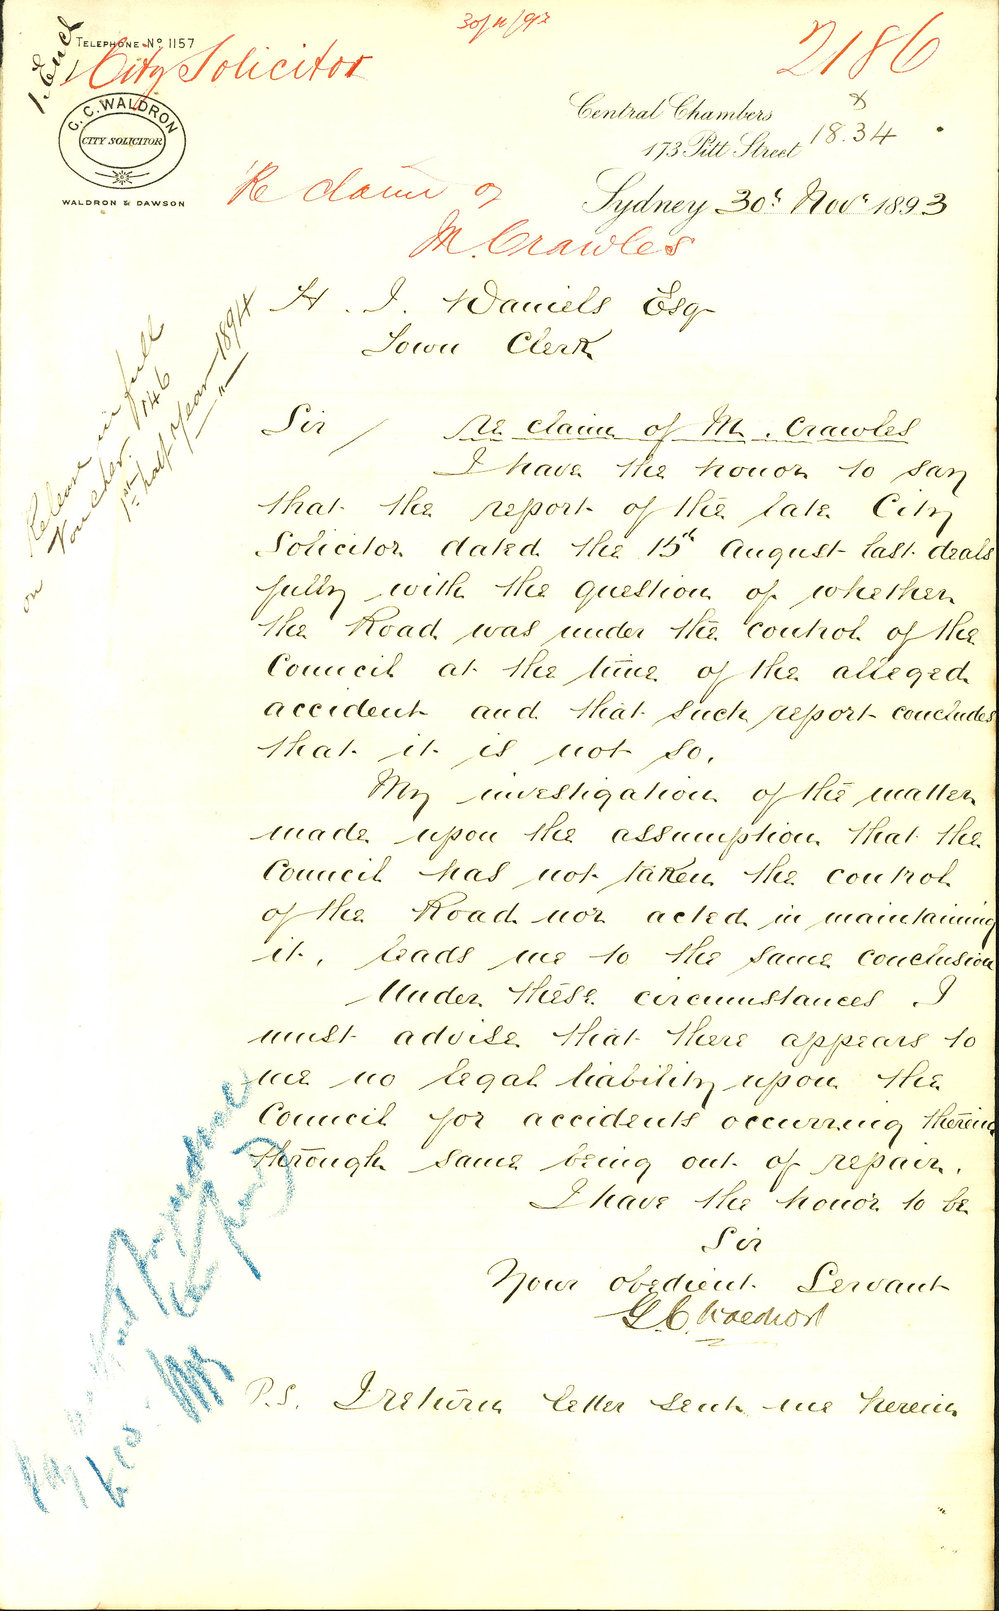 30/11/93
2186
1. Encl
TELEPHONE Nº 1157
City Solicitor
G. C. WALDRON
CITY SOLICITOR
WALDRON & DAWSON
Central Chambers
173 Pitt Street
18.34
Sydney 30th Novr 1893
Re claim of
M. Crawles
H. J. Daniels Esq
Town Clerk
Release in full
on Voucher. 1146
1st half year 1894
Sir / re claim of M. Crawles
I have the honor to say
that the report of the late City
Solicitor dated the 15th August last deals
fully with the question of whether
the Road was under the control of the
Council at the time of the alleged
accident and that such report concludes
that it is not so.
My investigation of the matter
made upon the assumption that the
Council has not taken the control
of the Road nor acted in maintaining
it, leads me to the same conclusion
Under these circumstances I
must advise that there appears to
me no legal liability upon the
Council for accidents occurring therein
through same being out of repair.
I have the honor to be
Sir
Your obedient Servant
G. C. Waldron
P.S. I return letter sent me herein